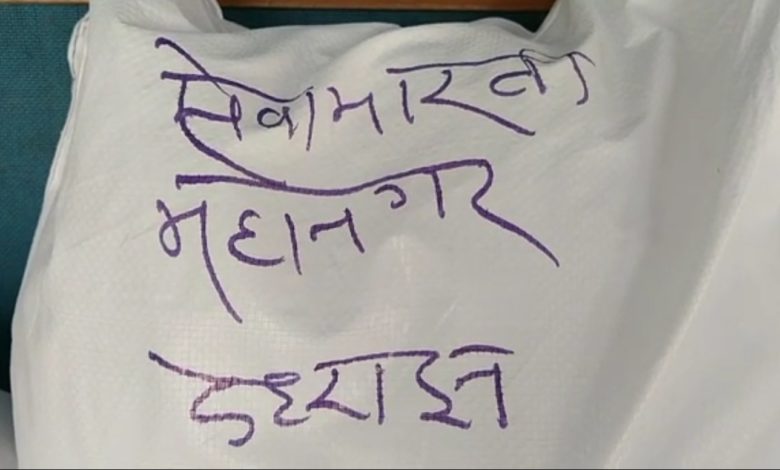 सेवाभारती
महानगर
देहरादून